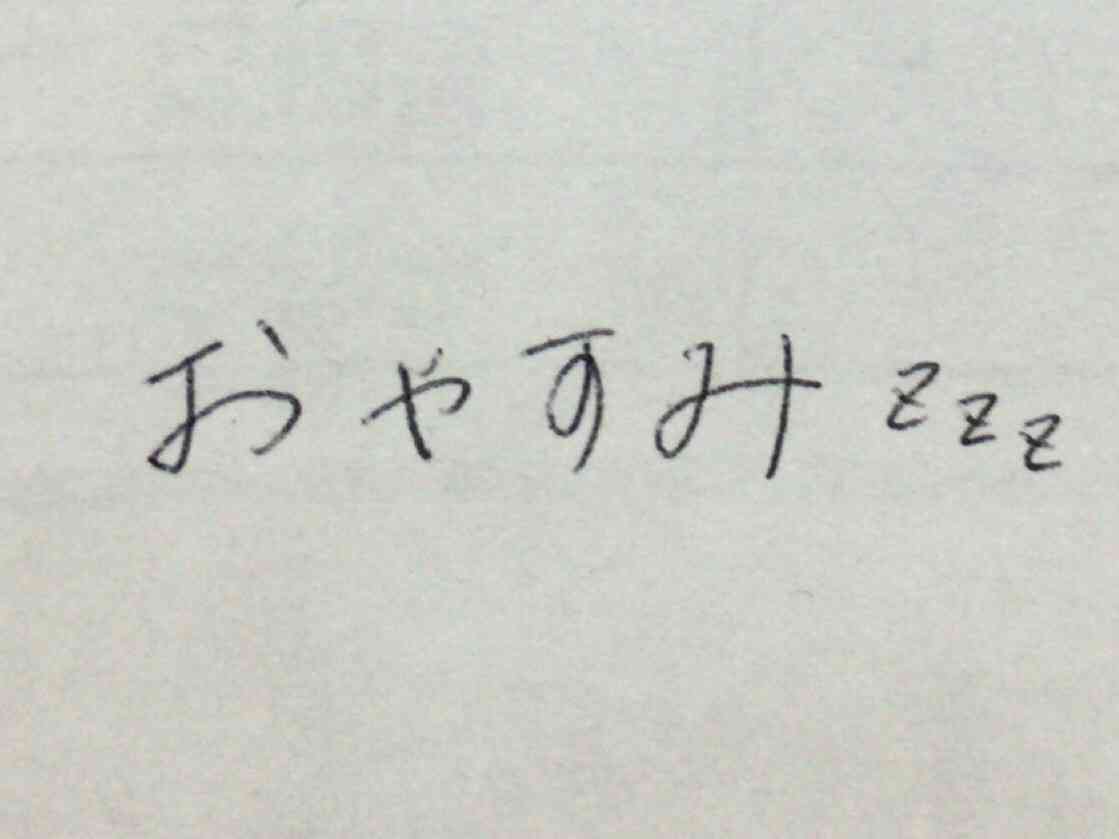 おやすみzzz